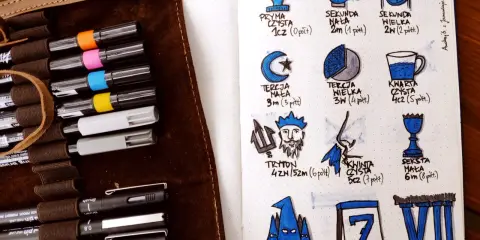 PRYMA
CZYSTA
1cz (0 półt)
SEKUNDA
MAŁA
2m (1 półt)
SEKUNDA
WIELKA
2w (2 półt)
TERCJA
MAŁA
3m (3 półt)
TERCJA
WIELKA
3w (4 półt)
KWARTA
CZYSTA
4cz (5 półt)
TRYTON
4zw/5zm (6 półt)
KWINTA
CZYSTA
5cz (7 półt)
SEKSTA
MAŁA
6m (8 półt)
7
VII